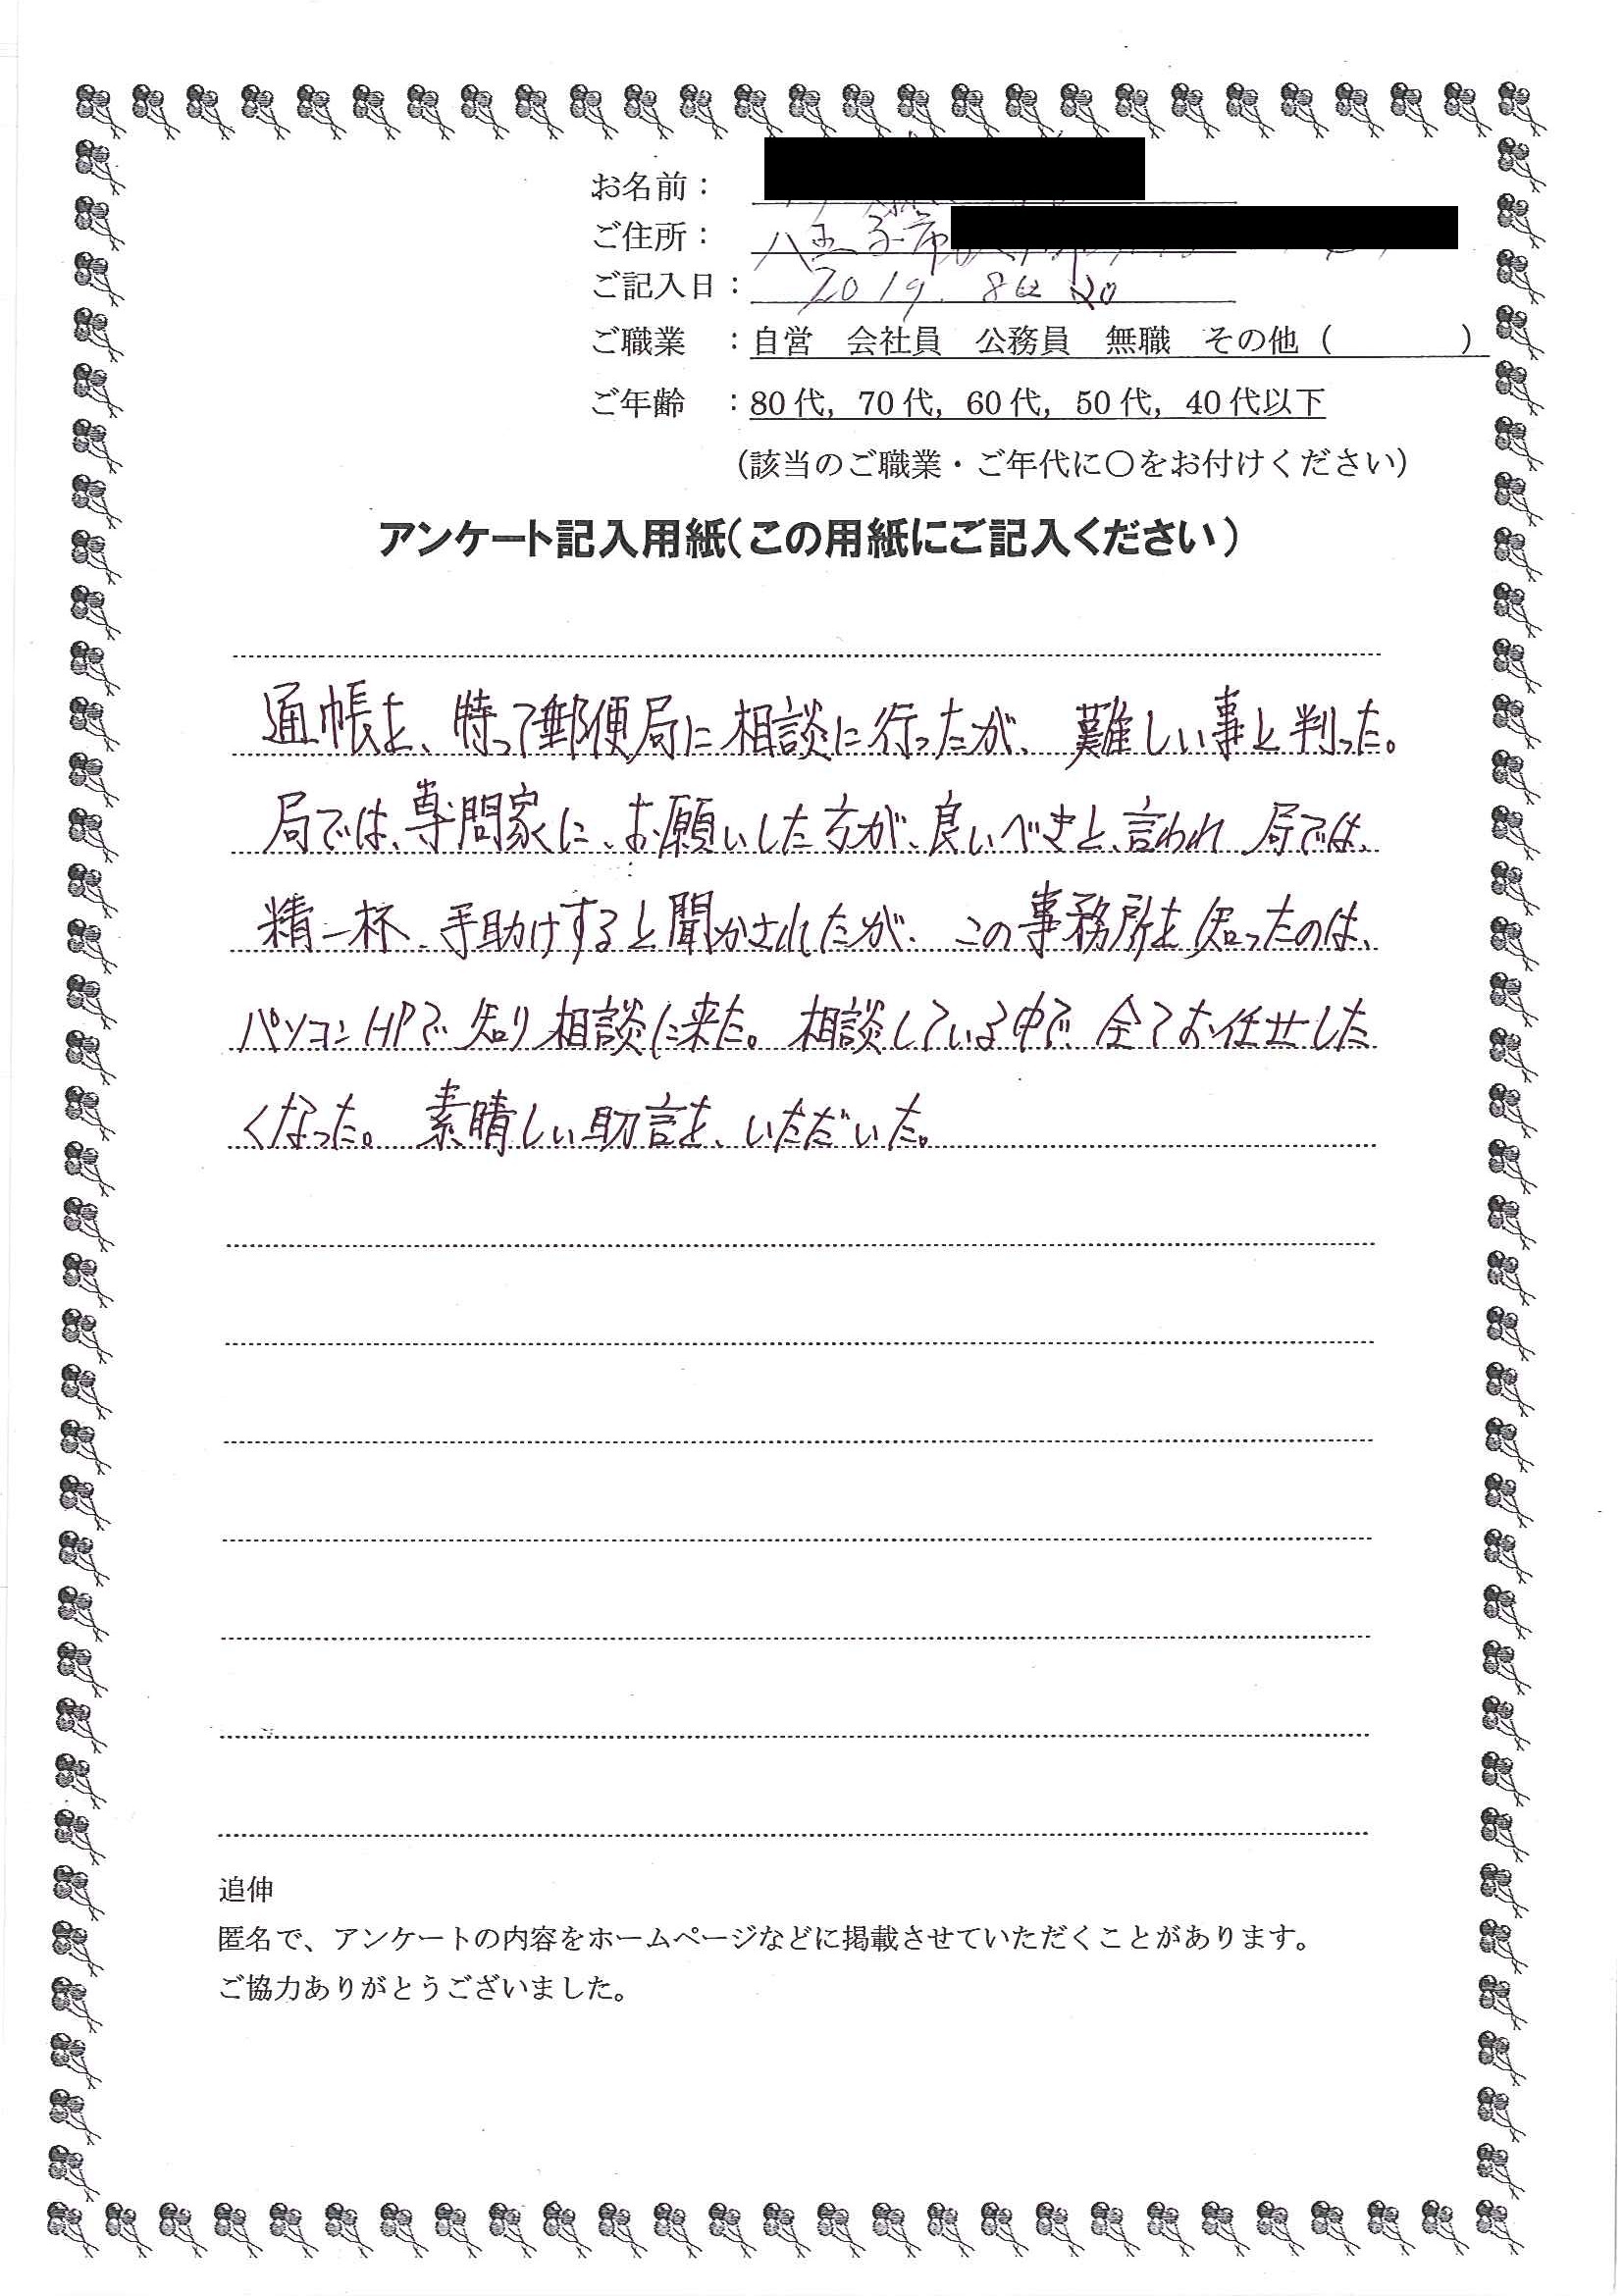 お名前：
ご住所：八王子市
ご記入日：2019. 8 20
ご職業 ：自営 会社員 公務員 無職 その他（ ）
ご年齢 ：80代，70代，60代，50代，40代以下
（該当のご職業・ご年代に〇をお付けください）
アンケート記入用紙（この用紙にご記入ください）
通帳を、持って郵便局に相談に行ったが、難しい事と判った。
局では、専問家に、お願いした方が、良いべきと、言われ 局では、
精一杯、手助けすると聞かされたが、この事務所を知ったのは、
パソコンHPで知り相談に来た。相談している中で、全てお任せした
くなった。素晴しい助言を、いただいた。
追伸
匿名で、アンケートの内容をホームページなどに掲載させていただくことがあります。
ご協力ありがとうございました。